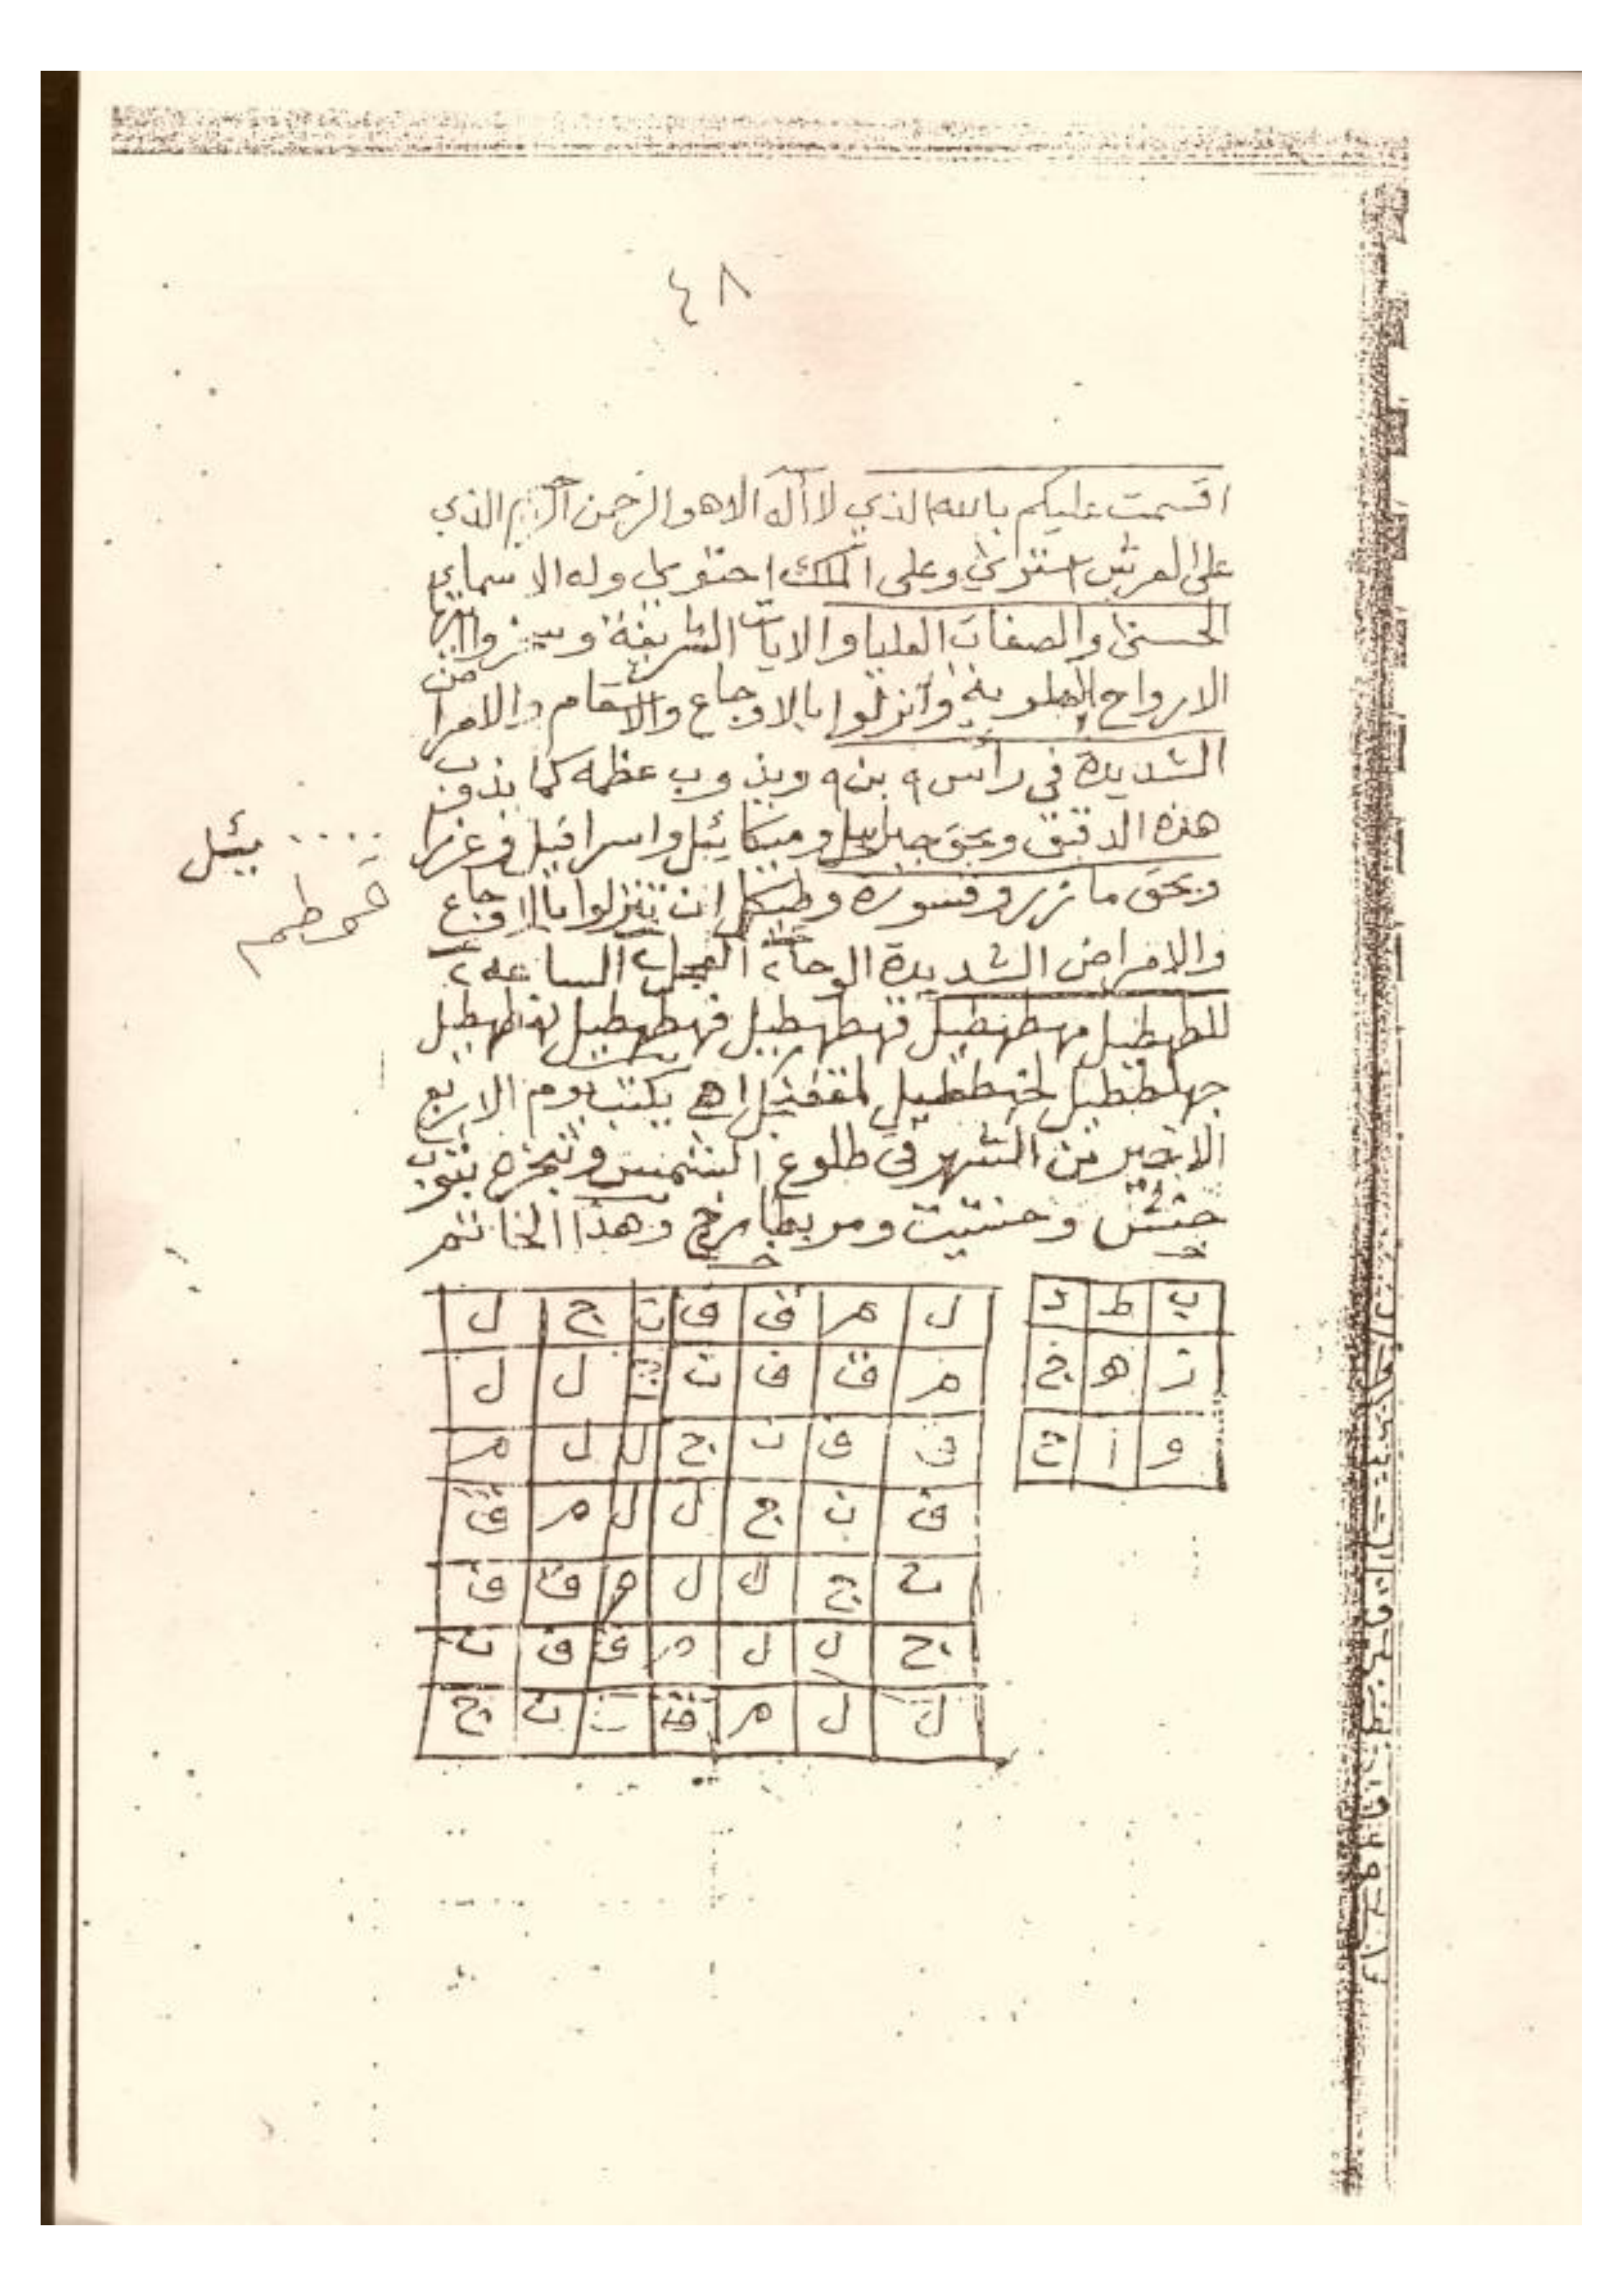 ٤٨
اقسمت عليكم بالله الذي لا اله الا هو الرحمن الرحيم الذي
على العرش استوى وعلى الملك احتوى وله الاسماء
الحسنى والصفات العليا والايات الشريفة
الارواح العلوية وانزلوا بالاوجاع والاسقام والامراض
الشديدة في رأس ٩ بن ٩ ويذوب عظمه كما يذوب
هذه الدقيق وبحق جبرائيل وميكائيل واسرافيل وعزرا
ئيل
وبحق مازر وقسورة وطيكل ان تنزلوا بالاوجاع
قوطم
والامراض الشديدة الوحا٢ العجل٢ الساعه٢
للطهطيل مهطهطيل قهطهطيل فهطهطيل نهطهطيل
جهلططيل لخهططيل لمقفنجل اهـ يكتب يوم الاربع
الاخير من الشهر في طلوع الشمس وتبخره بثوب
حنش وحنتيت ومر بطارخ وهذا الخاتم
ب ط د
ز ه ج
و ا ح
ل م ق ف ن ج ل
م ق ف ن ج ل ل
ق ف ن ج ل ل م
ف ن ج ل ل م ق
ن ج ل ل م ق ف
ج ل ل م ق ف ن
ل ل م ق ن ن ج